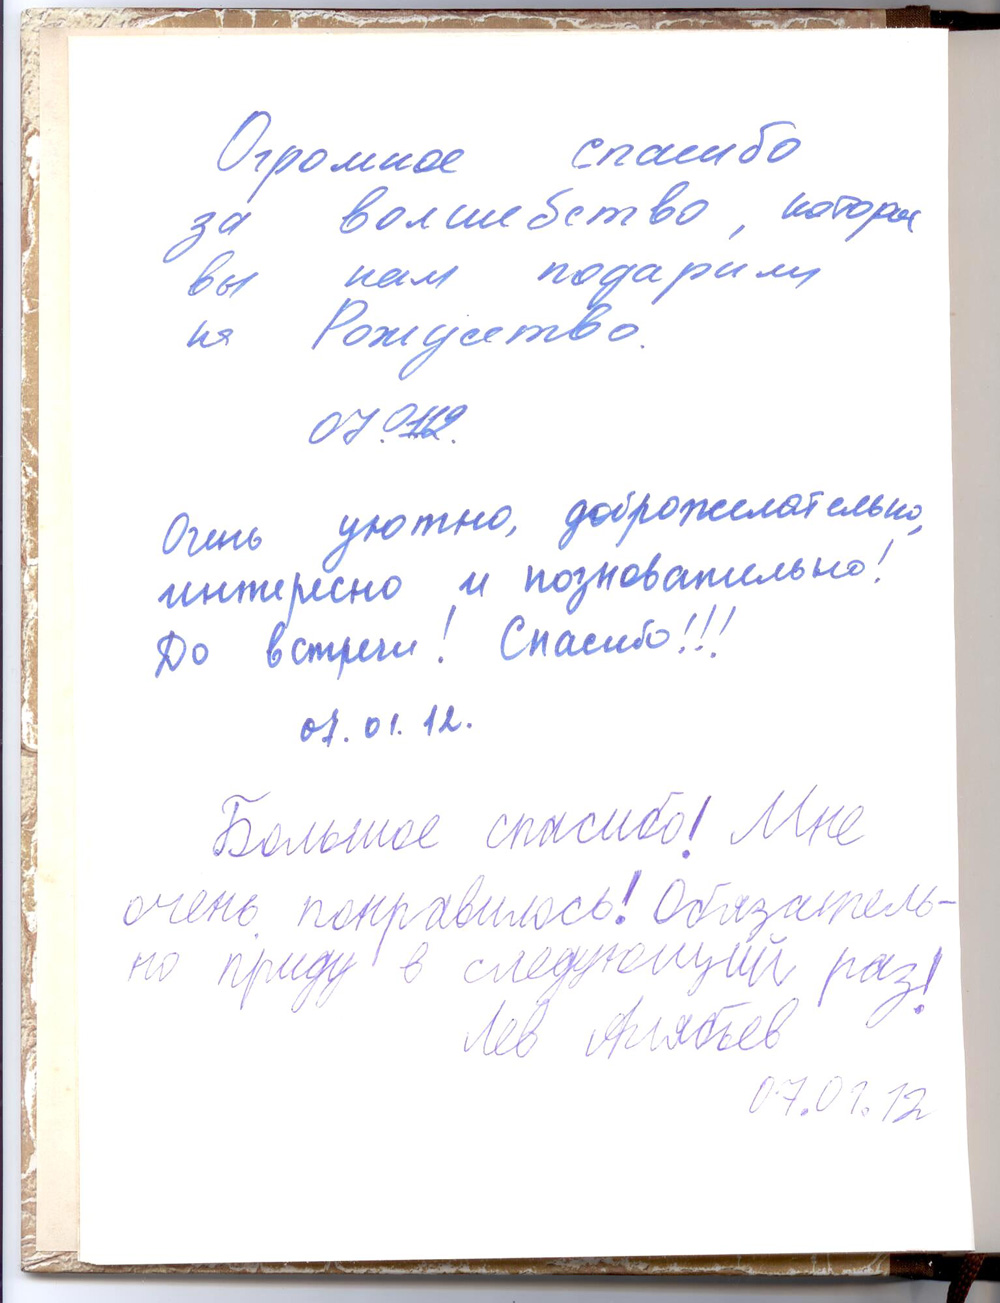 Огромное спасибо
за волшебство, которое
вы нам подарили
на Рождество.
07.01.12.
Очень уютно, доброжелательно,
интересно и позновательно!
До встречи! Спасибо!!!
07.01.12.
Большое спасибо! Мне
очень понравилось! Обязатель-
но приду в следующий раз!
Лев Алябьев
07.01.12